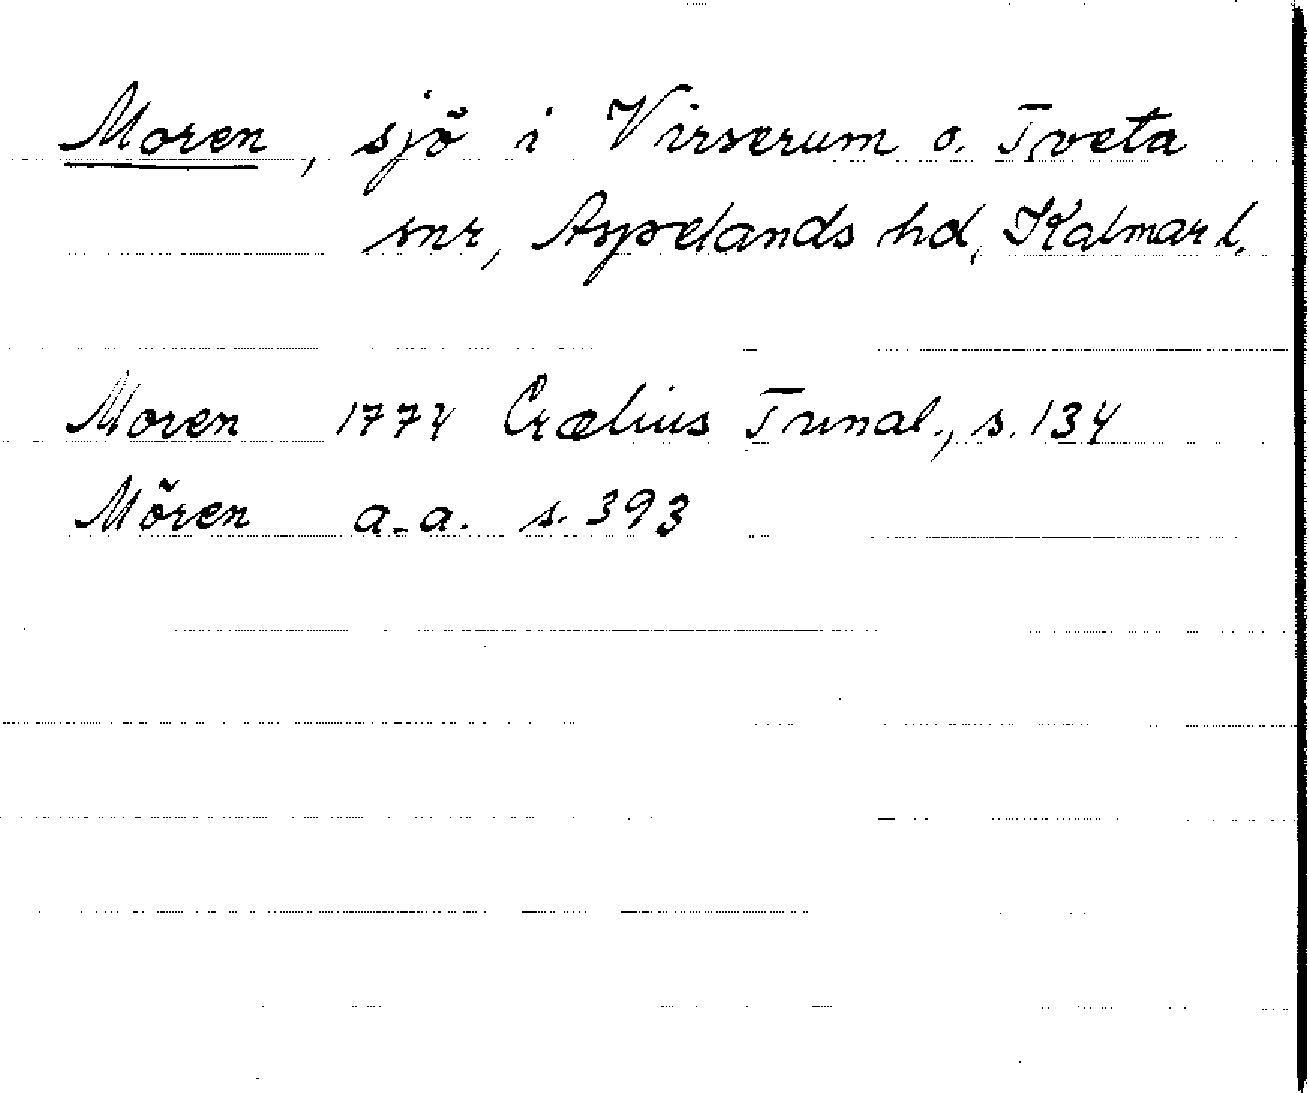 Moren, sjö i Virserum o. Tveta
snr, Aspelands hd, Kalmar l.
Moren 1774 Crælius Tunal., s. 134
Mören a.a. s. 393